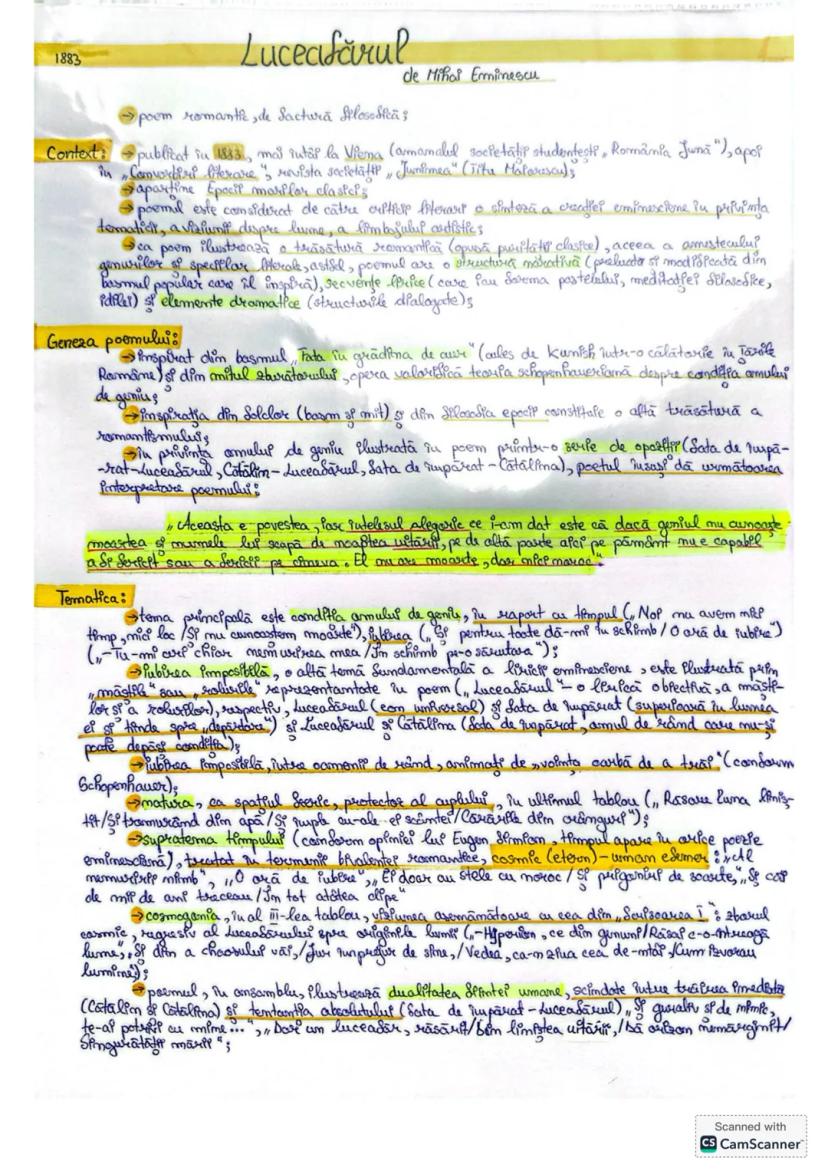 1883
Luceafărul
de Mihai Eminescu
→ poem romantic, de factură filosofică;
Context: → publicat în 1883, mai întâi la Viena (almanahul societății studențești „România Jună"), apoi
în „Convorbiri literare", revista societății „Junimea" (Titu Maiorescu);
→ aparține Epocii marilor clasici;
→ poemul este considerat de către criticii literari o sinteză a creației eminesciene în privința
tematicii, a viziunii despre lume, a limbajului artistic;
→ ca poem ilustrează o trăsătură romantică (opusă purității clasice), aceea a amestecului
genurilor și speciilor literare, astfel, poemul are o structură narativă (preluată și modificată din
basmul popular care îl inspiră), secvențe lirice (care iau forma pastelului, meditației filosofice,
idilei) și elemente dramatice (structurile dialogate);
Geneza poemului:
→ inspirat din basmul „Fata în grădina de aur" (cules de Kunish într-o călătorie în Țările
Române) și din mitul zburătorului, opera valorifică teoria schopenhaueriană despre condiția omului
de geniu;
→ inspirația din folclor (basm și mit) și din filosofia epocii constituie o altă trăsătură a
romantismului;
→ în privința omului de geniu ilustrată în poem printr-o serie de opoziții (fata de împă-
-rat-Luceafărul, Cătălin-Luceafărul, fata de împărat-Cătălina), poetul însuși dă următoarea
interpretare poemului:
„Aceasta e povestea, iar înțelesul alegoric ce i-am dat este că dacă geniul nu cunoaște
moartea și numele lui scapă de noaptea uitării, pe de altă parte aici pe pământ nu e capabil
a fi fericit sau a ferici pe cineva. El nu are moarte, dar nici noroc."
Tematica:
→ tema principală este condiția omului de geniu, în raport cu timpul („Noi nu avem nici
timp, nici loc /Și nu cunoaștem moarte"), iubirea („Și pentru toate dă-mi în schimb / O oră de iubire")
(„-Tu-mi ceri chiar nemurirea mea / În schimb pe-o sărutare");
→ iubirea imposibilă, o altă temă fundamentală a liricii eminesciene, este ilustrată prin
„măștile" sau „rolurile" reprezentantate în poem („Luceafărul" - o lirică obiectivă, a măști-
lor și a rolurilor), respectiv, Luceafărul (eon universal) și fata de împărat (superioară în lumea
ei și tinde spre „depărtare") și Luceafărul și Cătălina (fata de împărat, omul de rând care nu-și
poate depăși condiția);
→ iubirea imposibilă, între oamenii de rând, animați de „voința oarbă de a trăi" (conform
Schopenhauer);
→ natura, ca spațiul feeric, protector al cuplului, în ultimul tablou („Răsare luna liniș-
tit/Și tremurând din apă/Și împle cu-ale ei scântei/Cărările din crânguri");
→ supratema timpului (conform opiniei lui Eugen Simion, timpul apare în orice poezie
eminesciană), tratat în termenii bivalenței romantice, cosmic (etern) - uman efemer: „Al
nemuririi nimb", „O oră de iubire", „Ei doar au stele cu noroc / Și prigoniri de soarte", „Și căi
de mii de ani treceau / În tot atâtea clipe"
→ cosmogonia, în al III-lea tablou, viziunea asemănătoare cu cea din „Scrisoarea I": zborul
cosmic, regresiv al Luceafărului spre originile lumii („-Hyperion, ce din genuni/Răsai c-o-ntreagă
lume", „Și din a chaosului văi,/Jur împrejur de sine,/Vedea, ca-n ziua cea de-ntâi,/Cum izvorau
lumine);
→ poemul, în ansamblu, ilustrează dualitatea ființei umane, scindate între trăirea imediată
(Cătălin și Cătălina) și tentantia absolutului (fata de împărat-Luceafărul) „Și guraliv și de nimic,
te-ai potrivi cu mine...", „Dar un luceafăr, răsărit/Din liniștea uitării,/Dă orizon nemărginit/
Singurătății mării";
Scanned with
CS CamScanner